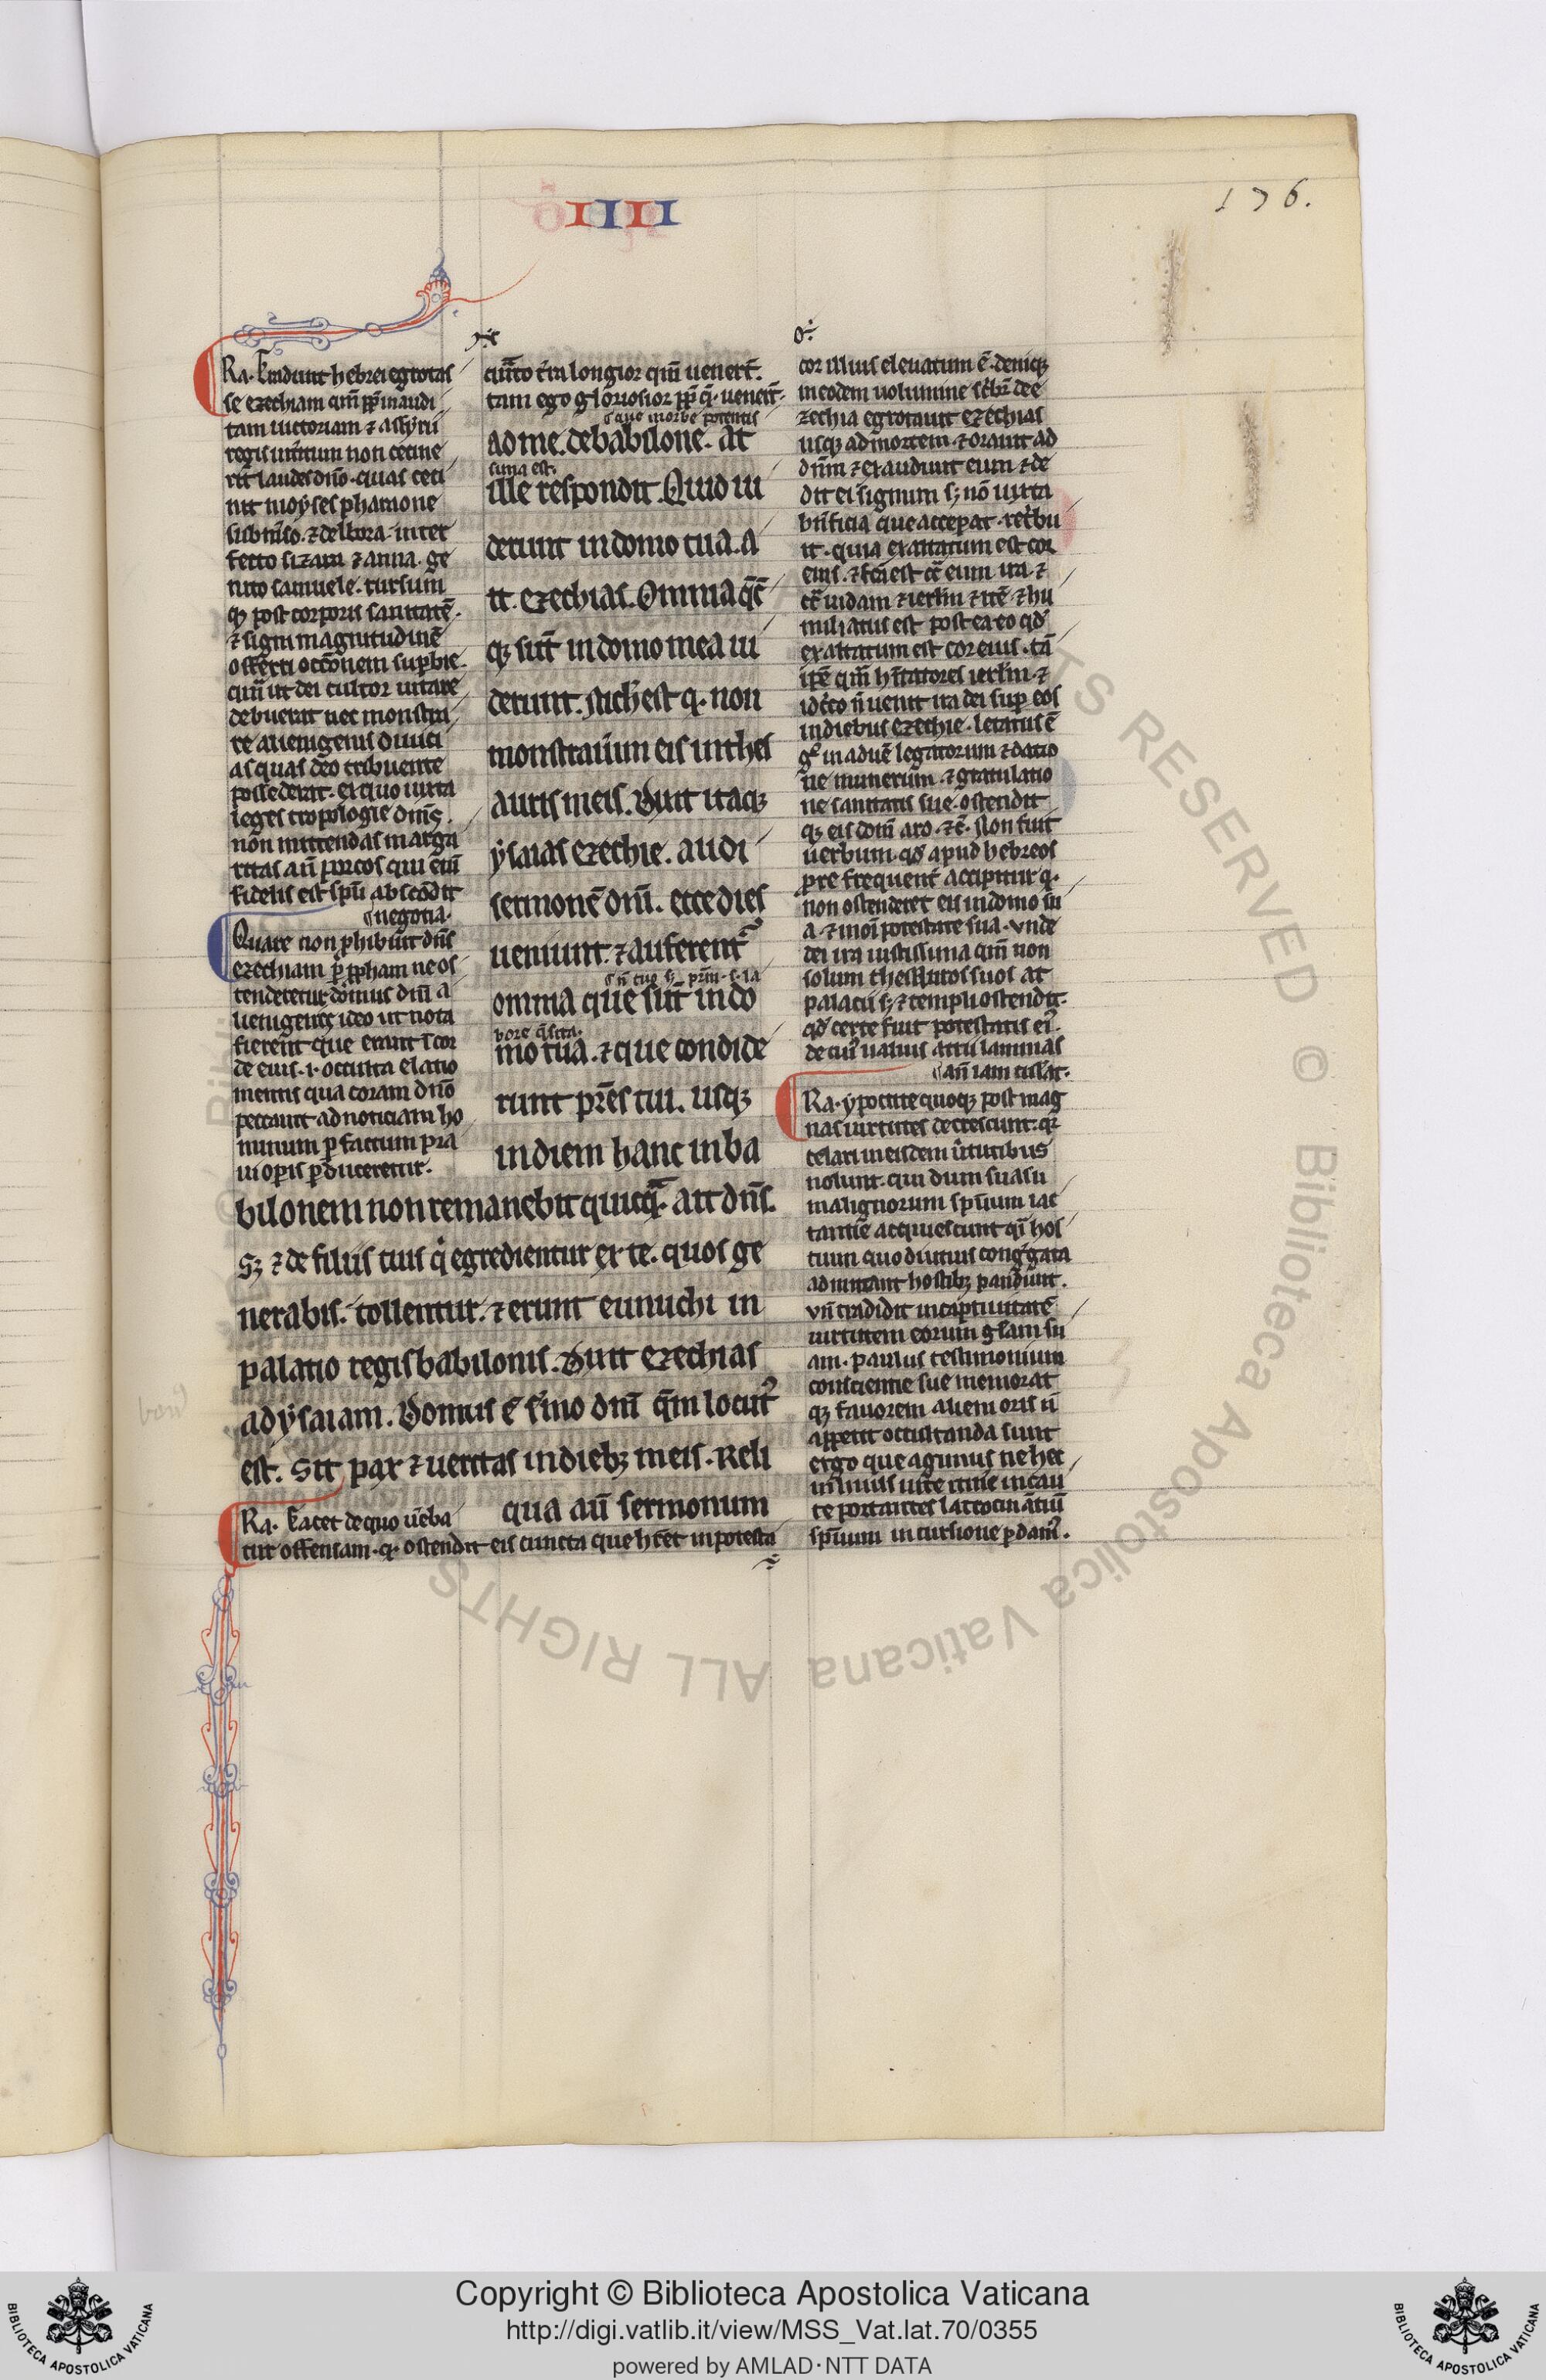 IIII
176.
Ra. Tradunt hebrei egrotas
se ezechiam qm̄ pp̄ inaudi
tam uictoriam ⁊ assyrii
regis interitum non cecine
rit laudes dn̄o. quas ceci
nit moyses pharaone
submso. ⁊ delbora. inter
fecto sizara ⁊ anna. ge
nito samuele. rursum
qꝫ post corporis sanitatē.
⁊ signi magnitudinē
offerri occōnem supbie.
qm̄ ut dei cultor uitare
debuerit nec monstra
re alienigenis diuici
as quas deo tribuente
possederat. ex quo iuxta
leges tropologie dm̄s.
non mittendas marga
ritas an̄ porcos qui enī
fidelis est spū abscōdit
negotia.
Quare non phibuit dn̄s
ezechiam p̄ pp̄ham ne os
tenderetur domus dn̄i a
lienigenis ideo ut nota
fierent que erant ī cor
de eius. i. occulta elatio
mentis qua coram dn̄o
peccauit ad noticiam ho
minum p factum pra
ui opis pduceretur.
cūcto t̄ra longior qm̄ uenert̄.
tam ego gloriosior pp̄ q̄. uenert̄.
que morbe potentis
ad me. de babilone. At
suma est.
ille respondit. Quid ui
derunt in domo tua. a
it. ezechias. Omnia q̄c̄
qꝫ sūt in domo mea ui
derunt. Nichil est q. non
monstrauim eis in thes
auris meis. Dixit itaqꝫ
ysaias ezechie. audi
sermonē dn̄i. ecce dies
ueniunt. ⁊ auferent᷑
n̄ tuo sꝫ prm̄. s. la
omnia que sūt in do
bore q̄sita.
mo tua. ⁊ que condide
runt prēs tui. usqꝫ
in diem hanc in ba
bilonem non remanebit quicq̄. ait dn̄s.
Sꝫ ⁊ de filiis tuis q̇ egredientur ex te. quos ge
nerabis. tollentur. ⁊ erunt eunuchi in
palatio regis babilonis. Dixit ezechias
ad ysaiam. Bonus ē s̄mo dn̄i q̄m locut᷒
est. Sit pax ⁊ ueritas in diebꝫ meis. Reli
qua aū sermonum
Ra. Tacet de quo u̇eba
tur offensam. q. ostendit eis cuncta que hr̄et in potesta
cor illius eleuatum ē. deniqꝫ
in eodem uolumine sc̄br̄ de e
zechia egrotauit ezechias
usqꝫ ad mortem. ⁊ orauit ad
dn̄m ⁊ exaudiuit eum ⁊ de
dit ei signum sꝫ nō iuxta
bn̄ficia que accepat. ret̄bu
it. quia exaltatum est cor
eius. ⁊ fc̄a est cc̄ eum ira. ⁊
cc̄ iudam ⁊ ierlm̄ ⁊ itē ⁊ hu
miliatus est postea eo qd̄
exaltatum est cor eius. tā
ipē qm̄ hītatores ierlm̄. ⁊
idc̄co n̄ uenit ira dei sup eos
in diebus ezechie. letatus ē
g᷒ in aduē legatorum ⁊ datio
ne munerum. ⁊ gratulatio
ne sanitatis sue. ostendit
qꝫ eis dom̄ aro. ⁊c̄. Non fuit
uerbum. qd̄ apud hebreos
pre frequent̄ accipitur q.
non ostenderet eis in domo su
a. ⁊ in oī potestate sua. vnde
dei ira iustissima qm̄ non
solum thesauros suos at
palacii sꝫ ⁊ templi ostendit.
qd̄ certe fuit potestatis ei᷒.
de cui᷒ ualuis attu laminas
an̄ iam tulat.
Ra. ypocrite quoqꝫ post mag
nas uirtutes decrescunt. qr̄
celari in eisdem u̇tutibus
nolunt. qui dum suasu
malignorum spūum iac
tantie acquiescunt qi᷒ hos
tium quo diutius cong̣gata
adiuuant hostibꝫ pandunt.
vn̄ tradidit in captiuitatē
uirtutem eorum gl̄am su
am. paulus testimonium
conscientie sue memorat
qꝫ fauorem alieni oris n̄
appetit occultanda sunt
ergo que agimus ne hec
in huius uite itin̄e incau
te portantes latrocinātiū
spūum incursione pdam᷒.
Copyright © Biblioteca Apostolica Vaticana
http://digi.vatlib.it/view/MSS_Vat.lat.70/0355
powered by AMLAD·NTT DATA
BIBLIOTECA APOSTOLICA VATICANA
BIBLIOTECA APOSTOLICA VATICANA
© Biblioteca Apostolica Vaticana ALL RIGHTS RESERVED